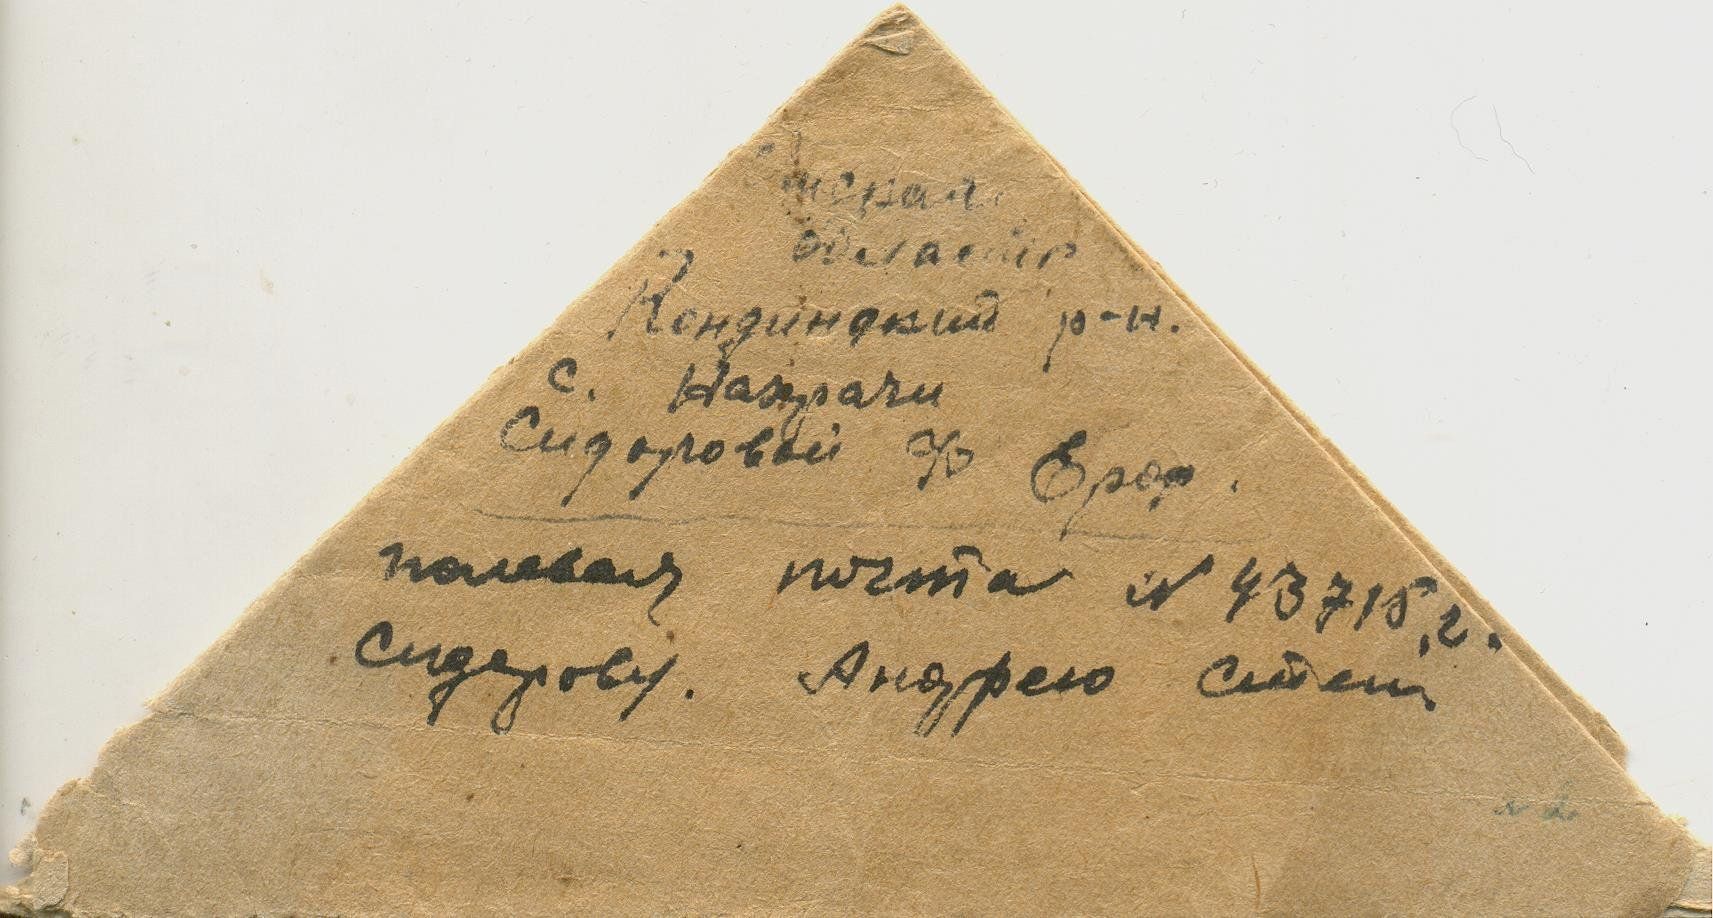 область
Кондинский р-н.
с. Нахрачи
Сидоровой Ероф.
полевая почта N 43715, г.
Сидорову. Андрею Степ.